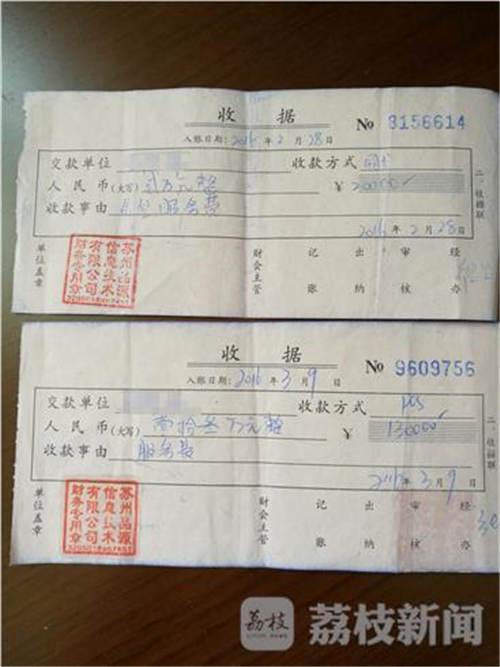 收据
№ 3156614
入账日期: 2016年2月28日
交款单位 收款方式
人民币(大写) 贰万元整 ¥ 20000
收款事由 服务费
2016年2月28日
二、收据联
单位盖章
苏州品源
信息技术
有限公司
财务专用章
财会主管
记账
出纳
审核
经办
收据
№ 9609756
入账日期: 2016年3月9日
交款单位 收款方式 pos
人民币(大写) 万元整 ¥ 130000
收款事由 服务费
2016年3月9日
二、收据联
单位盖章
苏州品源
信息技术
有限公司
财务专用章
财会主管
记账
出纳
审核
经办
荔枝 荔枝新闻